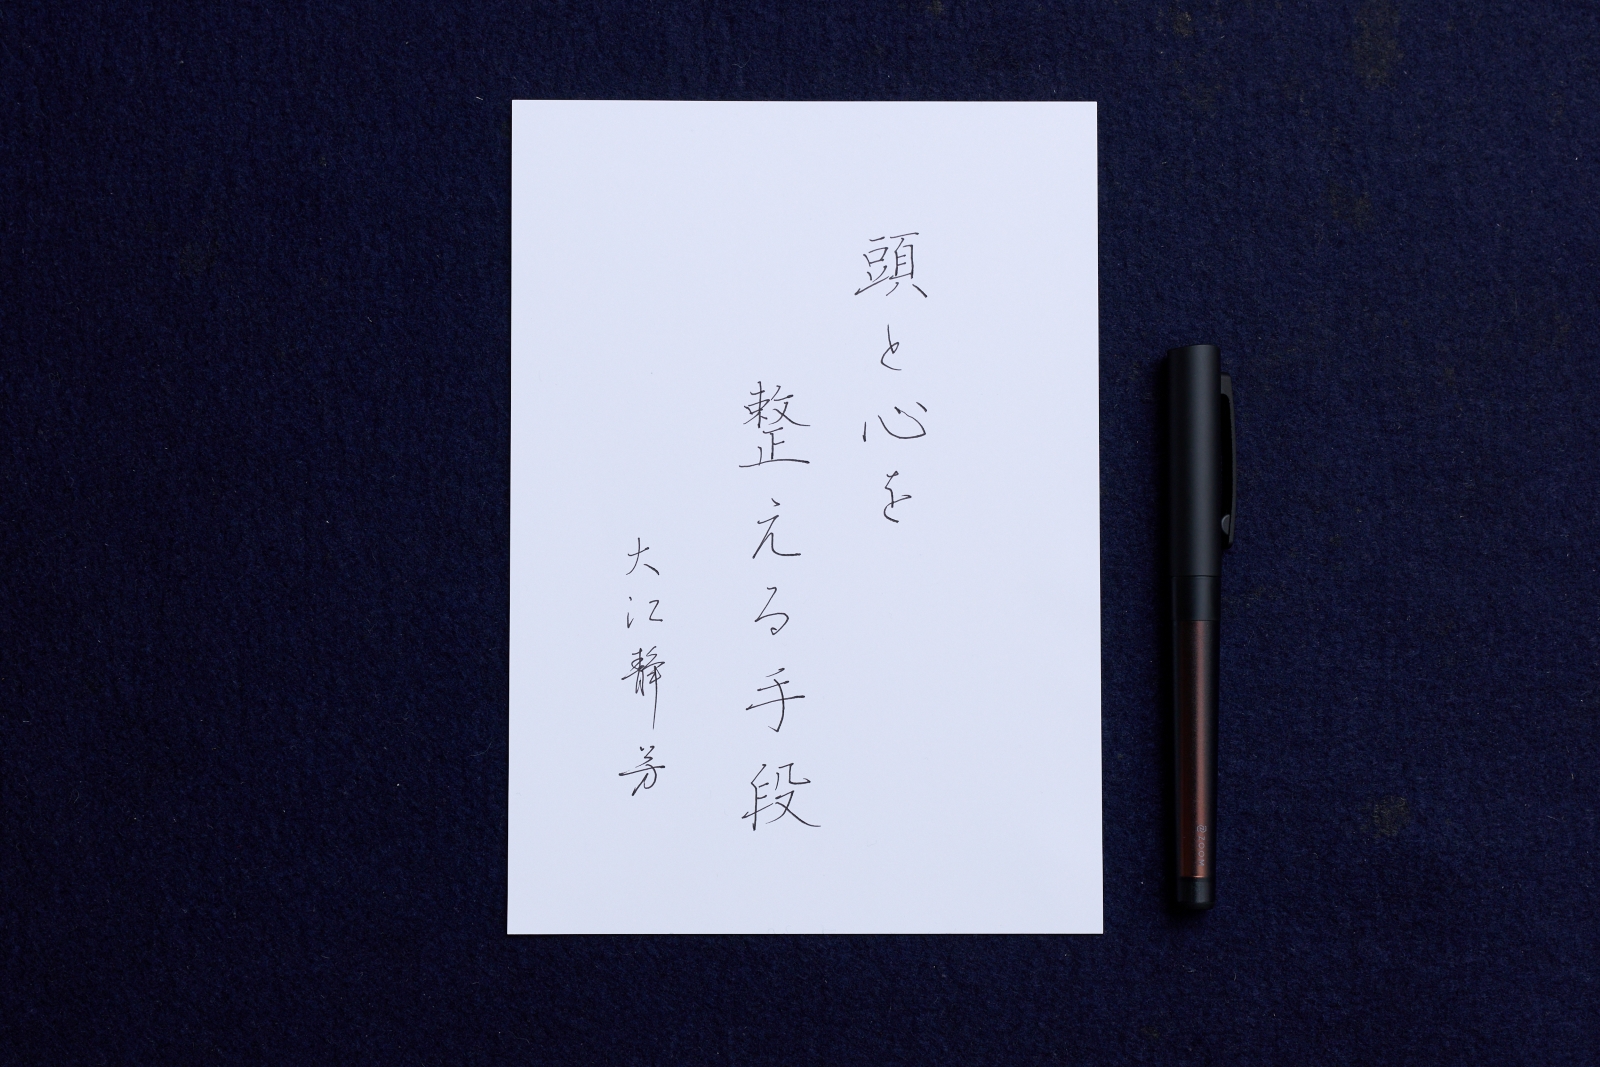 頭と心を
整える手段
大江静芳
@ZOOM